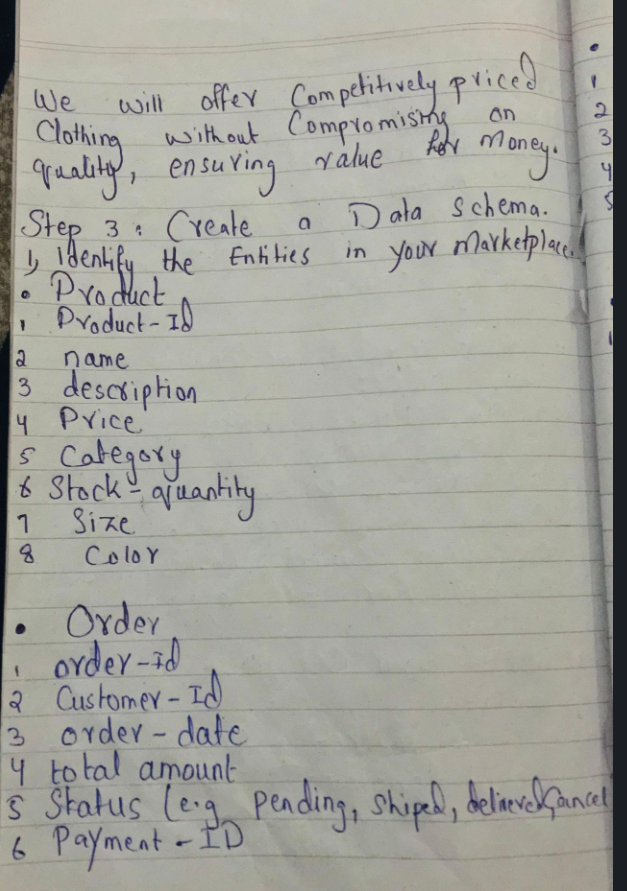 We will offer Competitively priced
Clothing without Compromising on
quality, ensuring value for Money.
Step 3: Create a Data Schema.
1, Identify the Entities in your Marketplace.
• Product
1 Product-Id
2 name
3 description
4 Price
5 Category
6 Stock-quantity
7 Size
8 Color
• Order
1 order-id
2 Customer-Id
3 order-date
4 total amount
5 Status (e.g Pending, Shiped, delivered, Cancel
6 Payment-ID
•
1
2
3
4
5